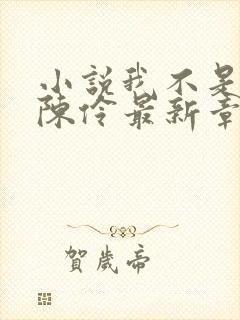 小說我不是
陳伶最新章
賀歲帝